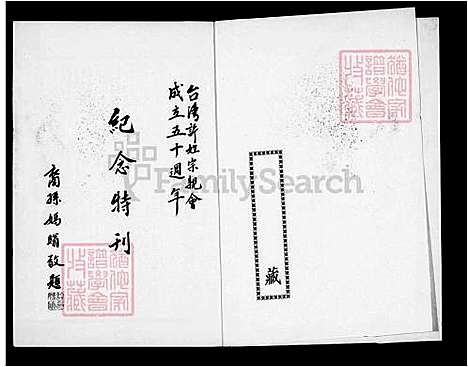 台灣許姓宗親會
成立五十週年
紀念特刊
裔孫媽瑙敬題
藏
FamilySearch